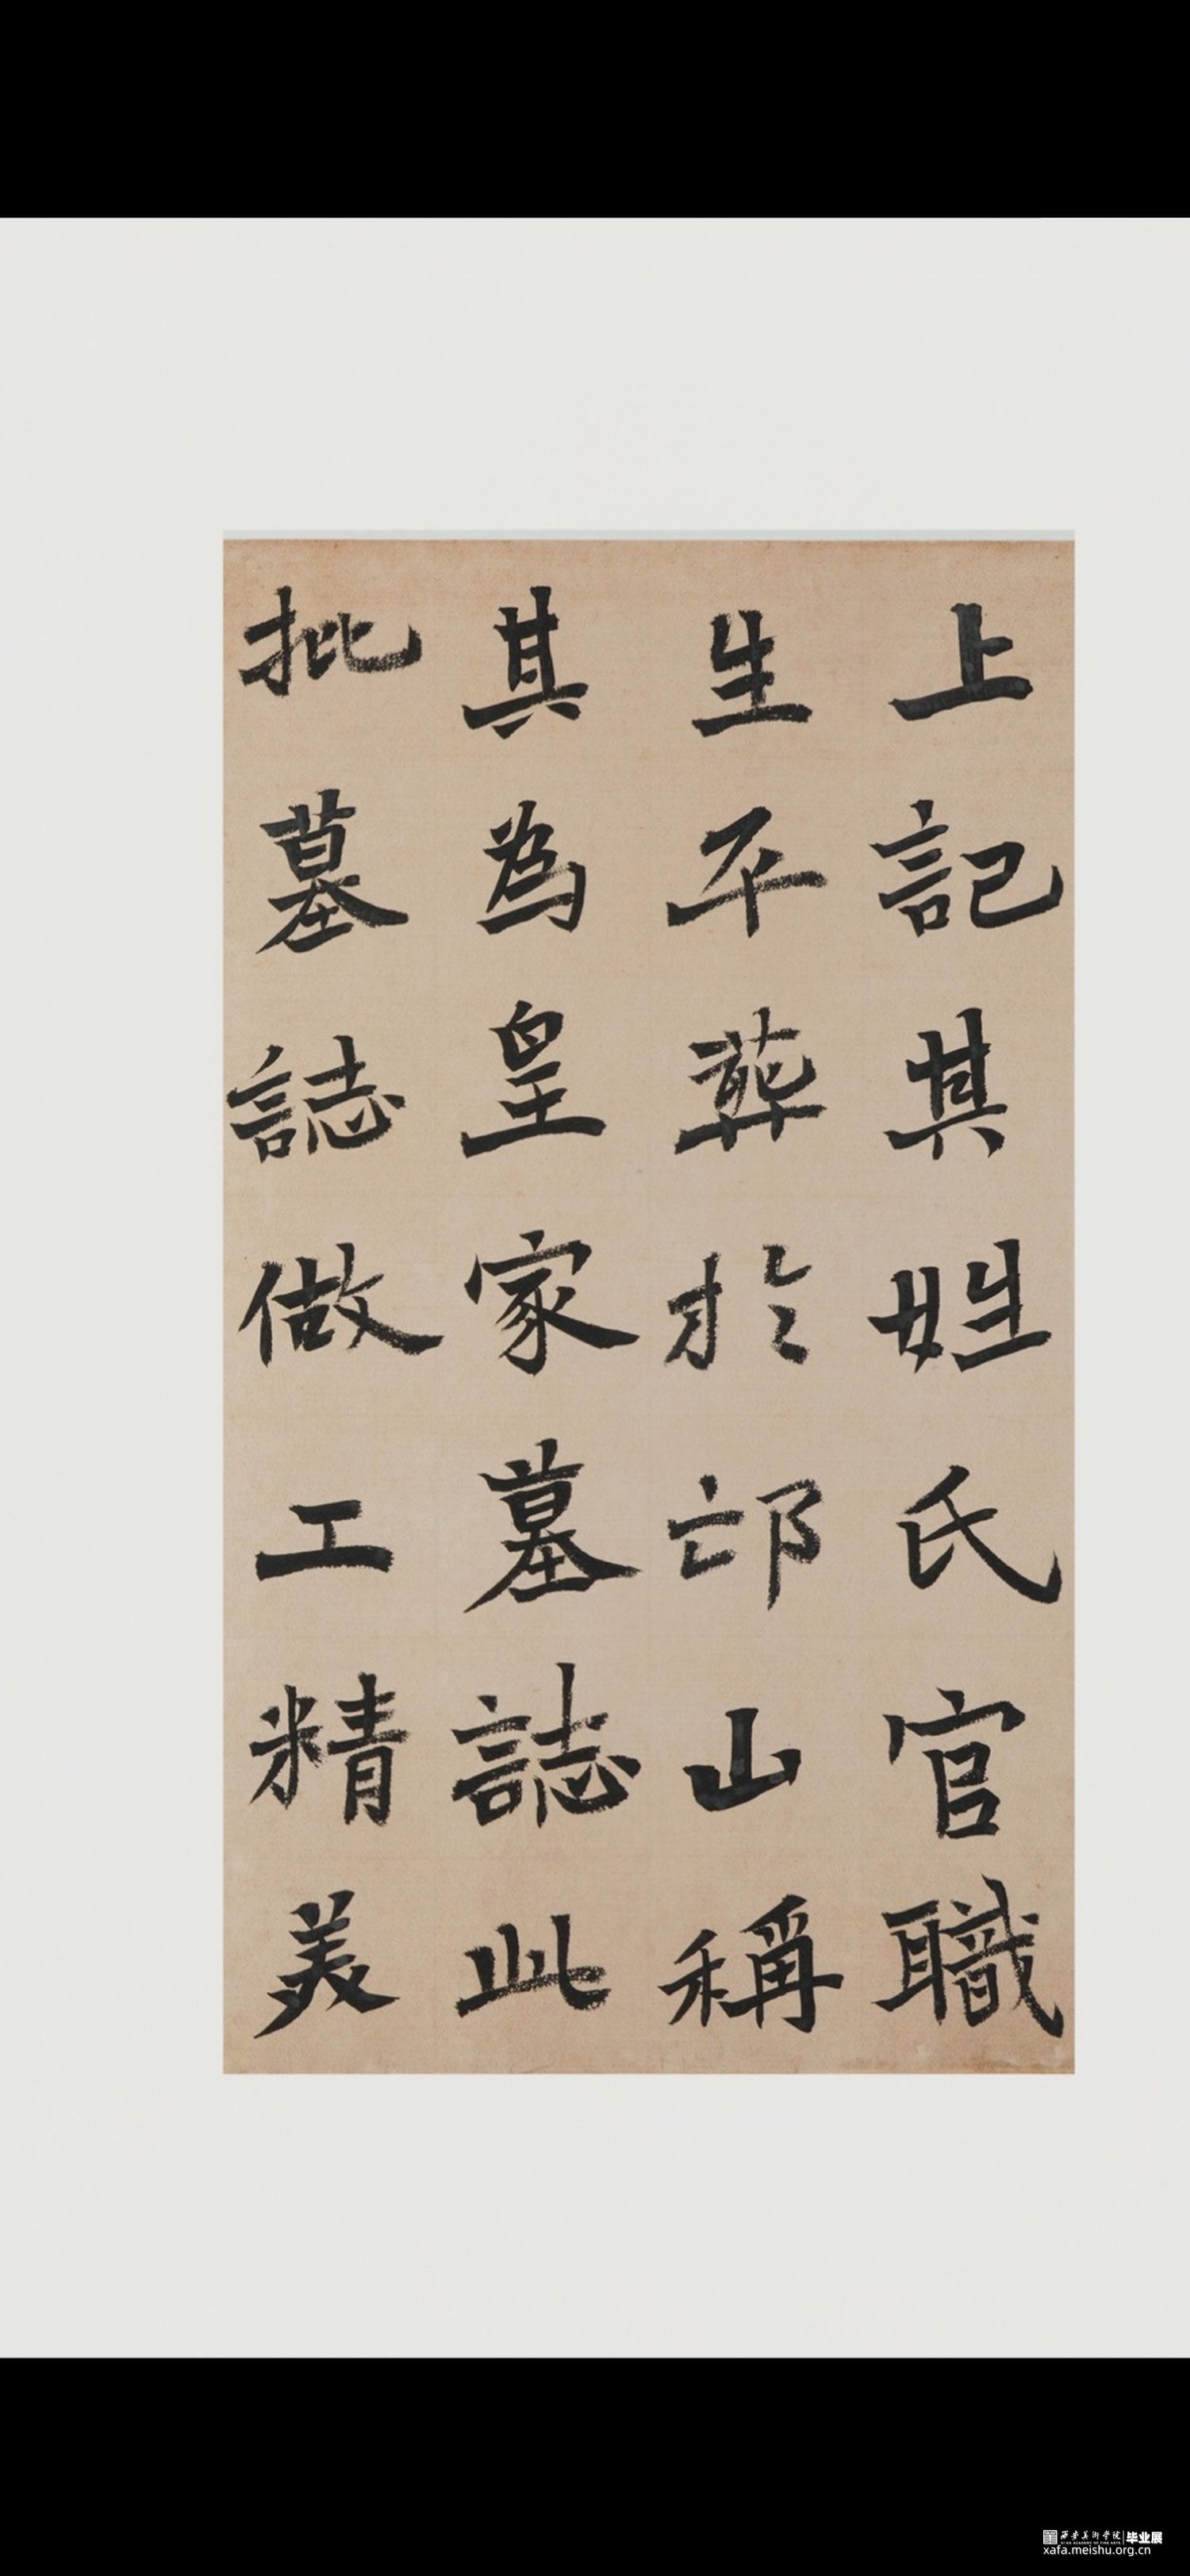 上記其姓氏官職
生平葬於邙山稱
其為皇家墓誌此
批墓誌做工精美
西安美術學院 毕业展
XI'AN ACADEMY OF FINE ARTS
xafa.meishu.org.cn